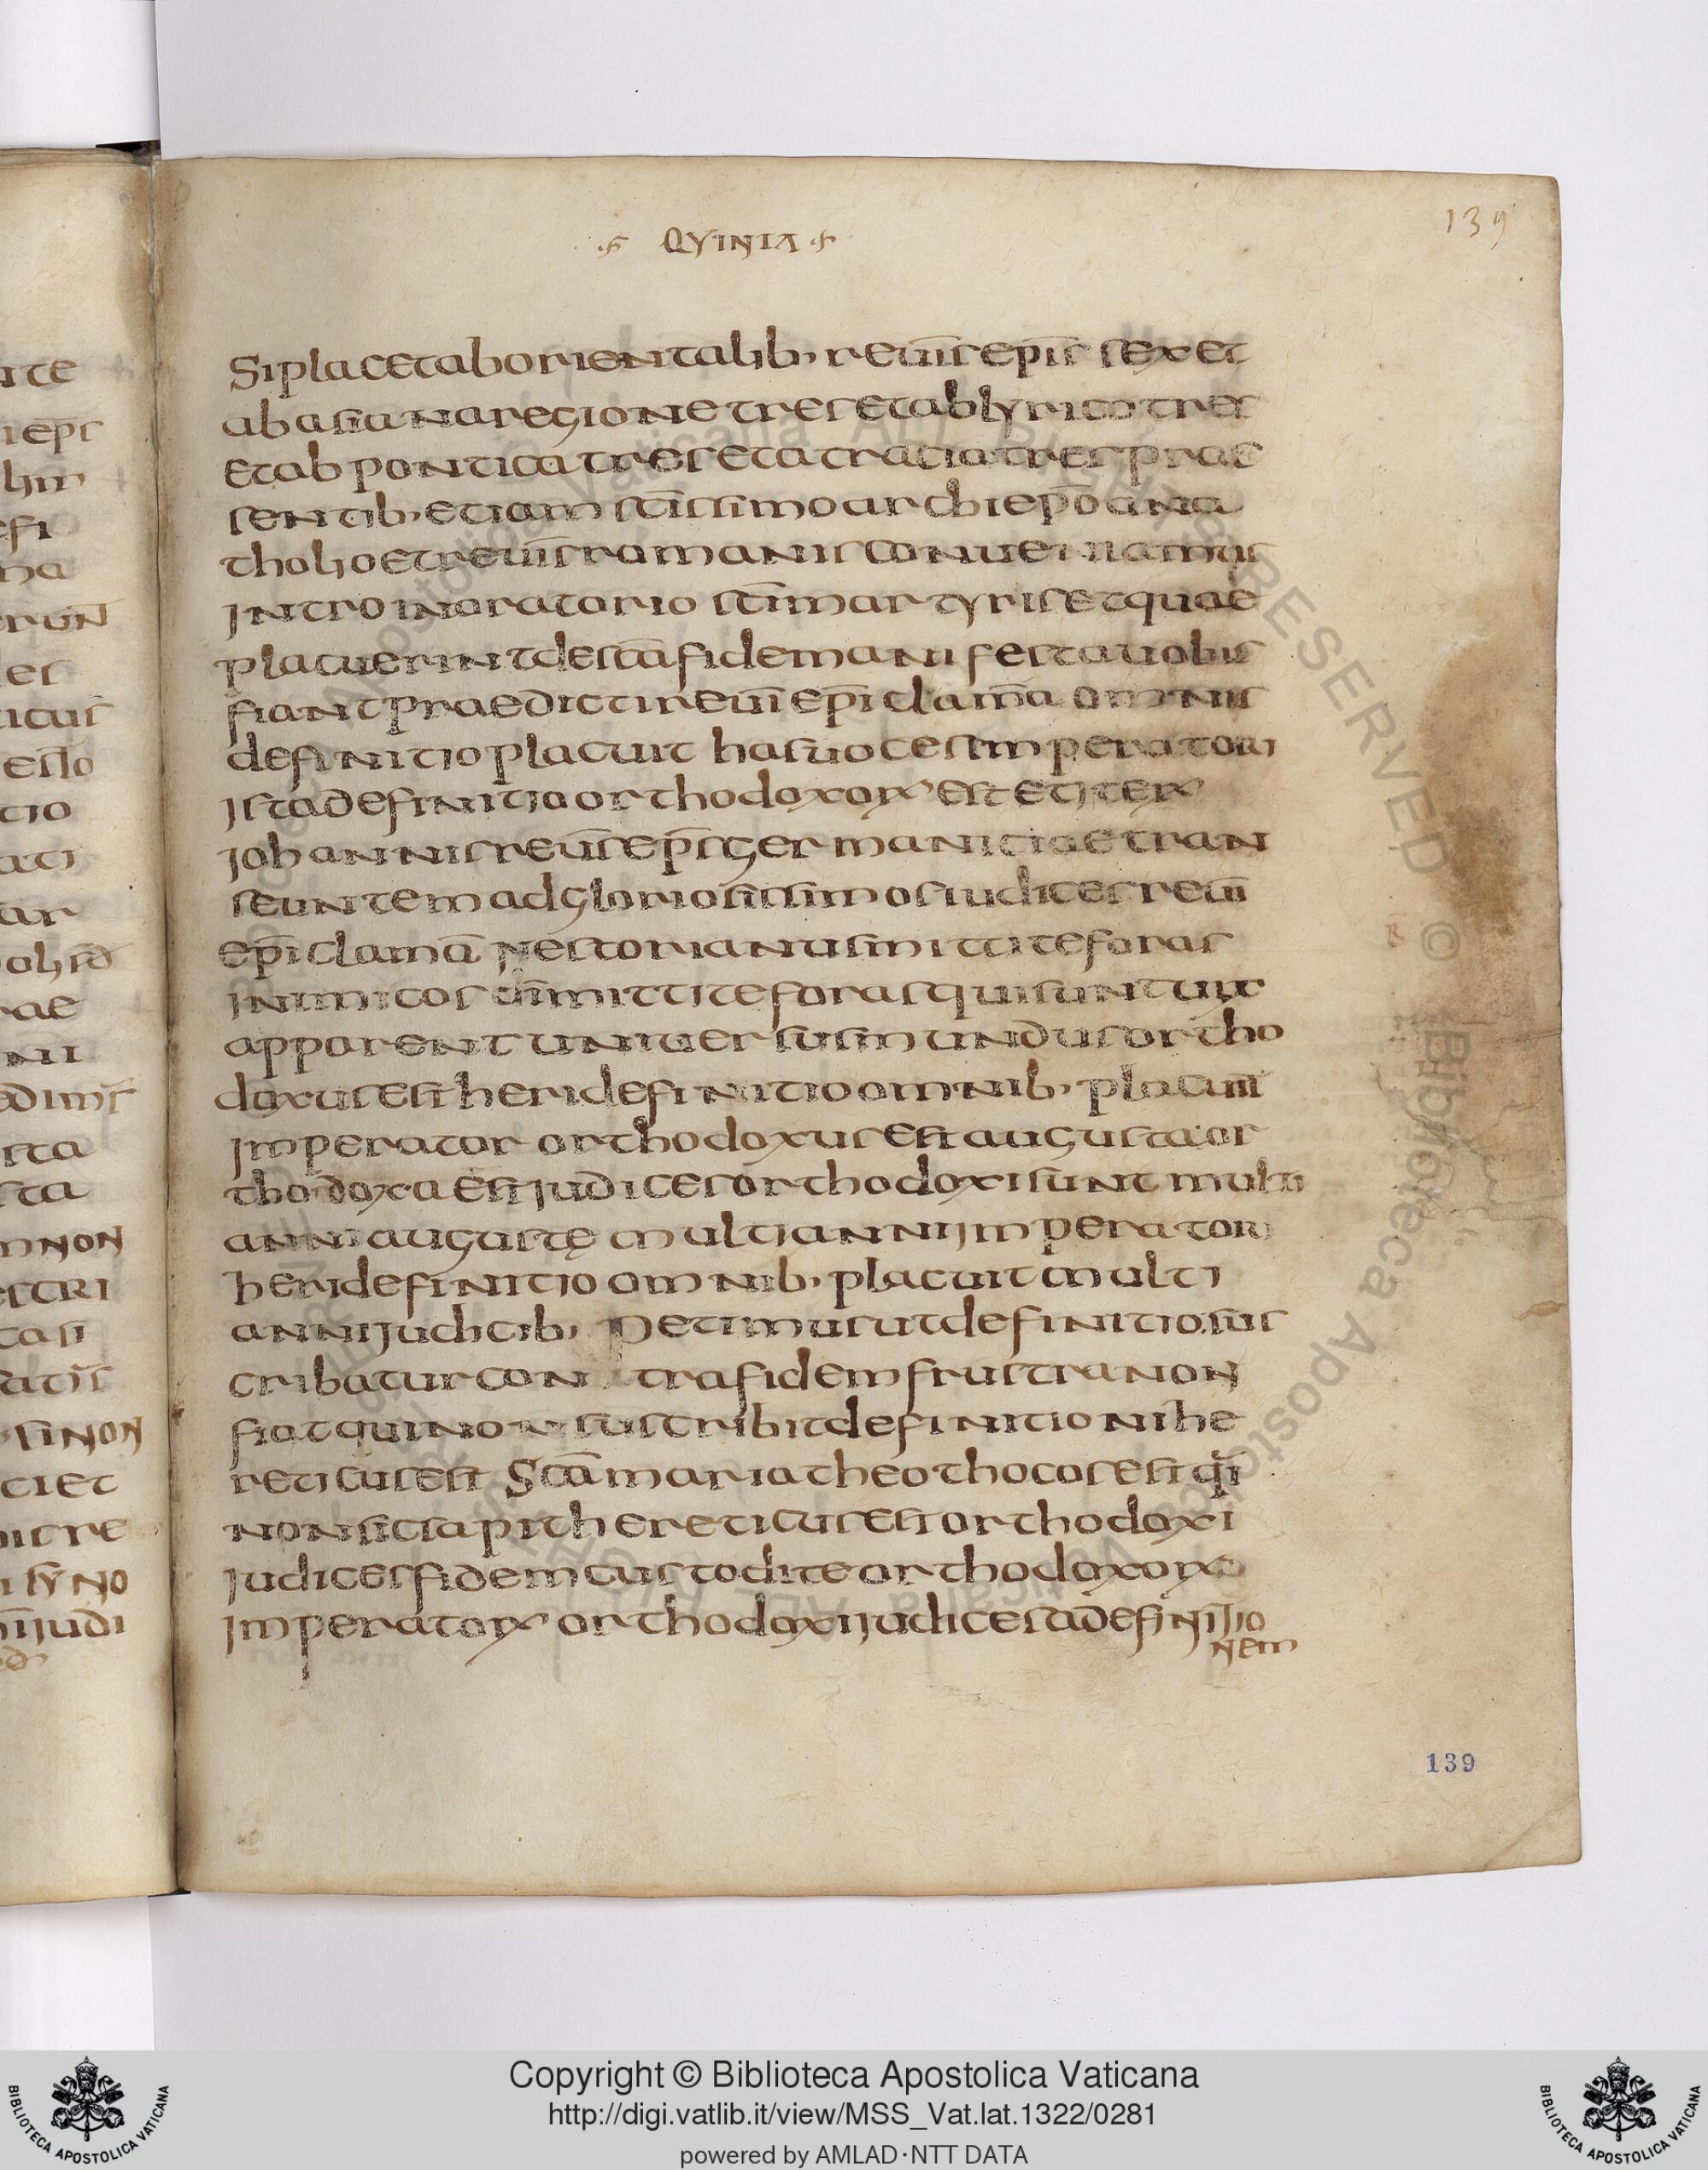 139
QUINTA
Si placet ab orientalib, reuīs epīs sex et
ab asiana regione tres et ab lyrico tres
et ab pontica tres et a tracia tres prae
sentib, etiam sc̄issimo archiepō ana
tholio et reuīs romanis conueniamus
intro in oratorio sc̄i martyris et quae
placuerint de sc̄a fide manifesta uobis
fiant praedicti reuī epī clamā omnis
definitio placuit has uoces imperatori
ista definitio orthodoxoꝝ est et iteꝝ
johannis reuīs epīs germaniciae tran
seuntem ad gloriosissimos iudices reuī
epī clamā nestorianus mittite foras
inimicos dīm mittite foras qui sunt uix
apparent uniuersus mundus ortho
doxus est heri definitio omnib, placuit
imperator orthodoxus est augusta or
thodoxa est judices orthodoxi sunt multi
anni augustę multi anni imperatori
heri definitio omnib, placuit multi
anni judicib, petimus ut definitio sus
cribatur con trafidem frustra non
fiat qui non suscribit definitioni he
reticus est Scā maria theothocos est q̄i
non sic sapit hereticus est orthodoxi
judices fidem custodite orthodoxoꝝ
imperatoꝝ orthodoxi judices tā definitio
nem
139
ite
i eps
efi
na
erun
les
ticus
tio
ati
ar
rae
nii
sta
sta
mnon
estri
casi
sinon
ciet
Copyright © Biblioteca Apostolica Vaticana
http://digi.vatlib.it/view/MSS_Vat.lat.1322/0281
powered by AMLAD·NTT DATA
BIBLIOTECA APOSTOLICA VATICANA
BIBLIOTECA APOSTOLICA VATICANA